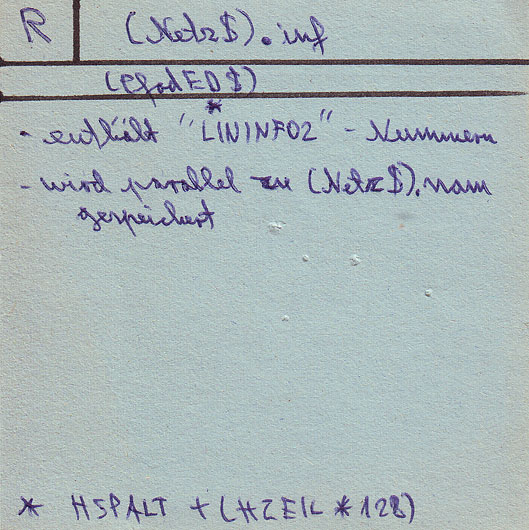 R (Netz$).inf
(PfadED$)
*
- enthält "LININFO2" - Nummern
- wird parallel zu (Netz$).nam
gespeichert
* HSPALT + (HZEIL * 128)